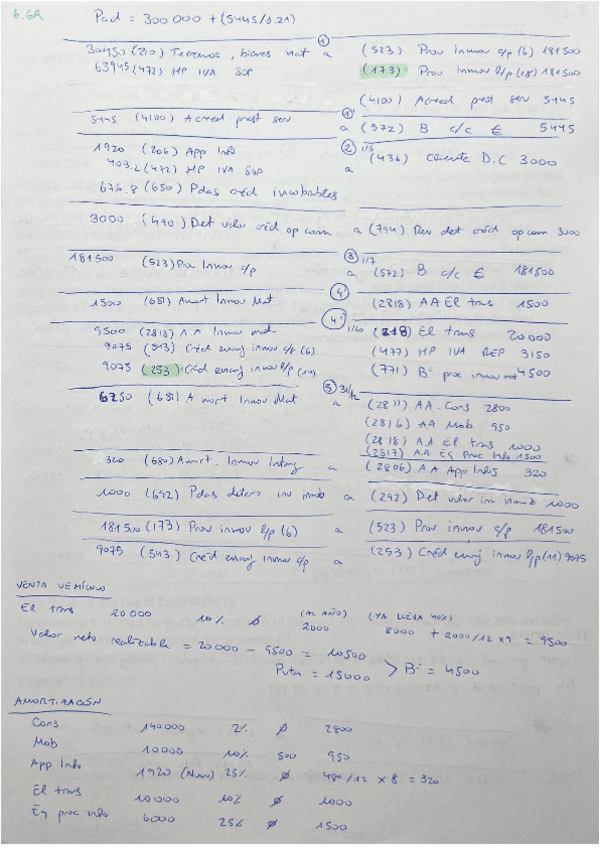 6.GR
Pad = 300 000 + (5445/0.21)
①
304450 (210) Terrenos, bienes nat a (523) Prov Inmov c/p (6) 181500
63945 (472) HP IVA SOP (173) Prov Inmov l/p (18) 181500
(4100) Acreed prest serv 5445
5445 (4100) Acreed prest serv a (572) B c/c € 5445
② 1/5
1920 (206) App Info a (436) Cliente D.C 3000
403.2 (472) HP IVA SOP
676.8 (650) Pdas créd incobrables
3000 (490) Det valor créd op com a (794) Rev det créd op com 3000
③ 1/7
181500 (523) Prov Inmov c/p a (572) B c/c € 181500
④
1500 (681) Amort Inmov Mat (2818) AA El trans 1500
9500 (2818) A.A Inmov mat (218) El trans 20000
9075 (543) Créd enaj inmov c/p (6) (477) HP IVA REP 3150
9075 (253) Créd enaj inmov l/p (14) (771) Bº proc inmov mat 4500
⑤ 31/12
6250 (681) Amort Inmov Mat a (2811) AA. Cons 2800
(2816) AA Mob 950
(2818) AA El trans 1000
(2817) AA Eq Proc Info 1500
320 (680) Amort. Inmov Intang a (2806) A.A App Info 320
1000 (692) Pdas deter inv inmob a (292) Det valor inv inmob 1000
181500 (173) Prov inmov l/p (6) a (523) Prov inmov c/p 181500
9075 (543) Créd enaj inmov c/p a (253) Créd enaj inmov l/p (11) 9075
VENTA VEHÍCULO
(AL AÑO) (YA LLEVA 40%)
El trans 20000 10% ∅ 2000 8000 + 2000/12 x 9 = 9500
Valor neto realizable = 20000 - 9500 = 10500
Pvta = 15000 > Bº = 4500
AMORTIZACIÓN
Cons 140000 2% ∅ 2800
Mob 10000 10% 500 950
App Info 1920 (Nuevo) 25% ∅ 480/12 x 8 = 320
El trans 10000 10% ∅ 1000
Eq proc info 6000 25% ∅ 1500